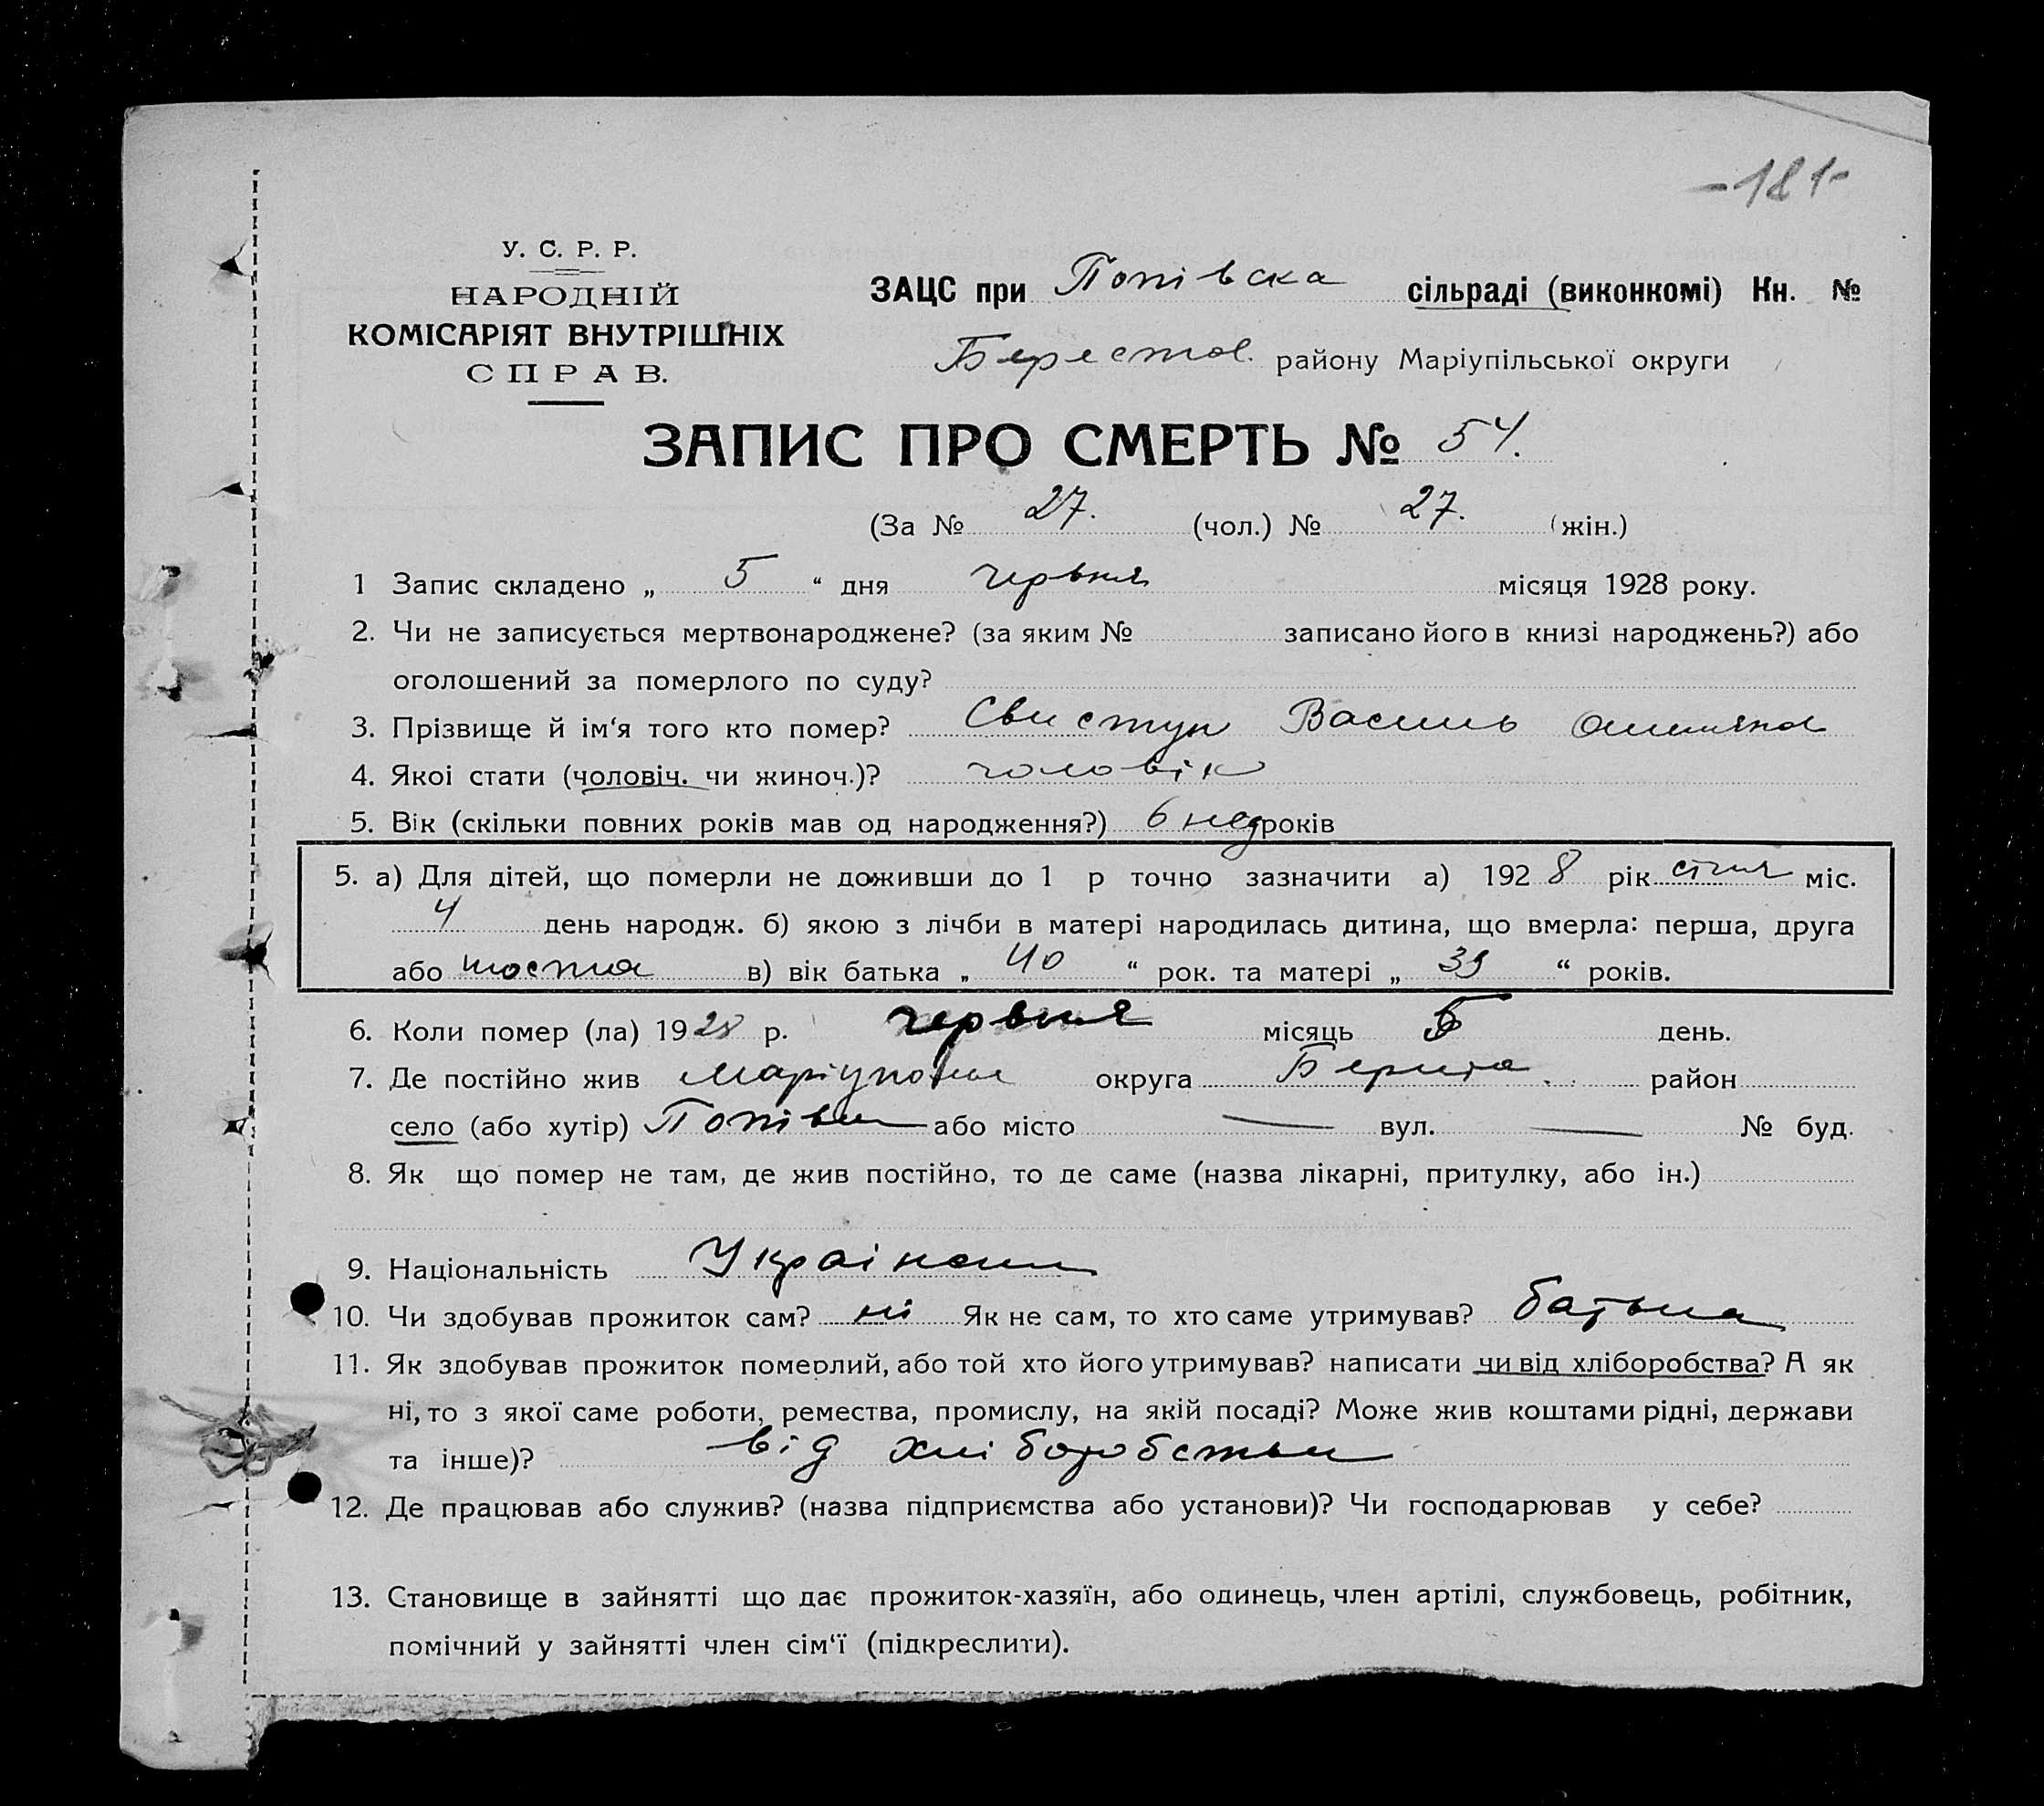 -181-
У. С. Р. Р.
НАРОДНІЙ
КОМІСАРІЯТ ВНУТРІШНІХ
СПРАВ.
ЗАЦС при Попівска сільраді (виконкомі) Кн. №
Берестов. району Маріупільської округи
ЗАПИС ПРО СМЕРТЬ № 54.
(За № 27. (чол.) № 27. (жін.)
1 Запис складено „ 5 “ дня червня місяця 1928 року.
2. Чи не записується мертвонароджене? (за яким № записано його в книзі народжень?) або
оголошений за померлого по суду?
3. Прізвище й ім‘я того кто помер? Свистун Василь
4. Якоі стати (чоловіч. чи жиноч.)? чоловік
5. Вік (скільки повних років мав од народження?) 6 нед років
5. а) Для дітей, що померли не доживши до 1 р точно зазначити а) 1928 рік міс.
4 день народж. б) якою з лічби в матері народилась дитина, що вмерла: перша, друга
або шоста в) вік батька „ 40 “ рок. та матері „ 39 “ років.
6. Коли помер (ла) 1928 р. червня місяць 5 день.
7. Де постійно жив округа район
село (або хутір) Попівка або місто — вул. — № буд.
8. Як що помер не там, де жив постійно, то де саме (назва лікарні, притулку, або ін.)
9. Національність
10. Чи здобував прожиток сам? ні Як не сам, то хто саме утримував? батька
11. Як здобував прожиток померлий, або той хто його утримував? написати чи від хліборобства? А як
ні, то з якої саме роботи, ремества, промислу, на якій посаді? Може жив коштами рідні, держави
та інше)? від хліборобства
12. Де працював або служив? (назва підприємства або установи)? Чи господарював у себе?
13. Становище в зайнятті що дає прожиток-хазяїн, або одинець, член артілі, службовець, робітник,
помічний у зайнятті член сім‘ї (підкреслити).